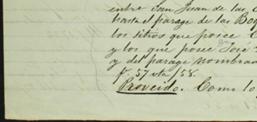 entre San Juan de las
hasta el parage de las Bo
los sitios que posee
y los que posee José
y del parage nombrad
fs. 57 vta. 58.
Proveido. Como lo